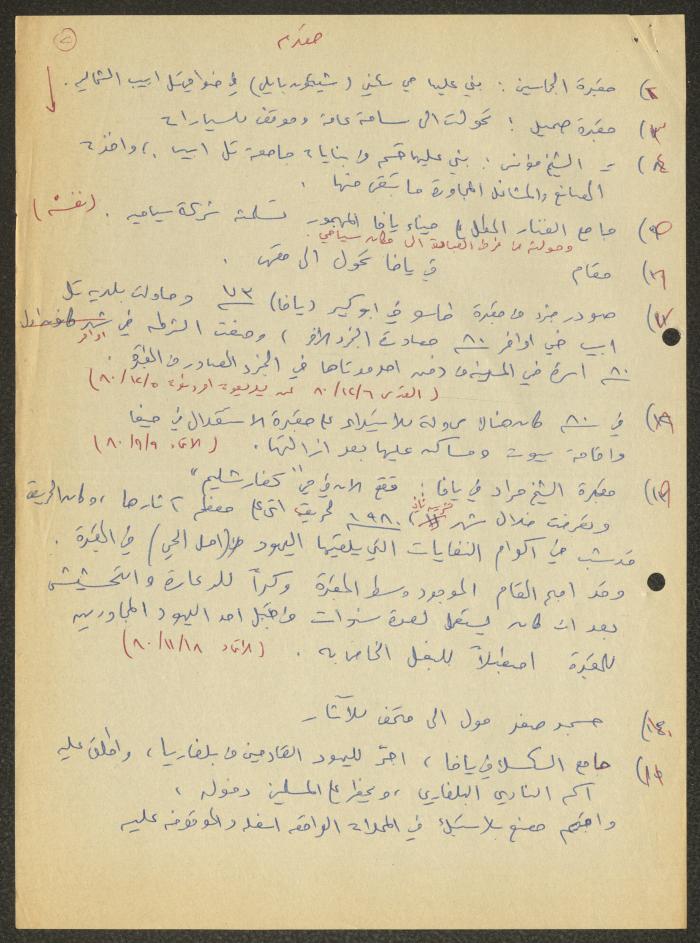 مقدمه
٢) مقبرة الجماسين : بني عليها حي سكني (شيكون بابلي) في ضواحي تل ابيب الشمالية .
٣) مقبرة صميل : تحولت الى ساحة عامة وموقف للسيارات
٤) = الشيخ مؤنس : بني عليها قسم من بنايات جامعة تل ابيب ، واخذت
المصانع والمشاغل المجاورة ما تبقى منها .
٥) جامع الفنار المطل على ميناء يافا المهجور تسلمته شركة سياحيه . (نفسه)
وحولته من غرفة العبادة الى مكان سياحي
٦) مقام في يافا تحول الى مقهى .
٧) صودر جزء من مقبرة طاسو في ابو كبير (يافا) ٧٣ وحاولت بلدية تل
ابيب في اواخر ٨٠ مصادرة الجزء الآخر ، ومنعت الشرطه في اواخر
٨٠ اسرة في المدينة من دفن احد موتاها في الجزء المصادر من المقبرة .
(القدس ٨٠/١٢/٦ عن يديعوت احرنوت ٨٠/١٢/٥)
في ٨٠ كانت هناك محاولة للاستيلاء على مقبرة الاستقلال في حيفا
واقامة بيوت ومساكن عليها بعد ازالتها . (الاتحاد ٨٠/٩/٩)
مقبرة الشيخ مراد في يافا : تقع الآن في حي "كفار شليم"
وتعرضت خلال شهر ١٩٨٠ لحريق اتى على معظم آثارها ، وكان الحريق
قد شب في اكوام النفايات التي يلقيها اليهود (اهل الحي) في المقبرة .
وقد اصبح المقام الموجود وسط المقبرة وكراً للدعارة والتحشيش
بعد ان كان يستعمل لعدة سنوات من قبل احد اليهود المجاورين
للمقبرة اصطبلاً للبغل الخاص به . (الاتحاد ٨٠/١١/١٨)
مسجد صفد حول الى متحف للآثار
جامع السكسك في يافا ، اجر لليهود القادمين من بلغاريا ، واطلق عليه
اسم النادي البلغاري ، ويحظر على المسلمين دخوله ،
واقيم مصنع بلاستيك في المحلات الواقعه اسفله والموقوفه عليه